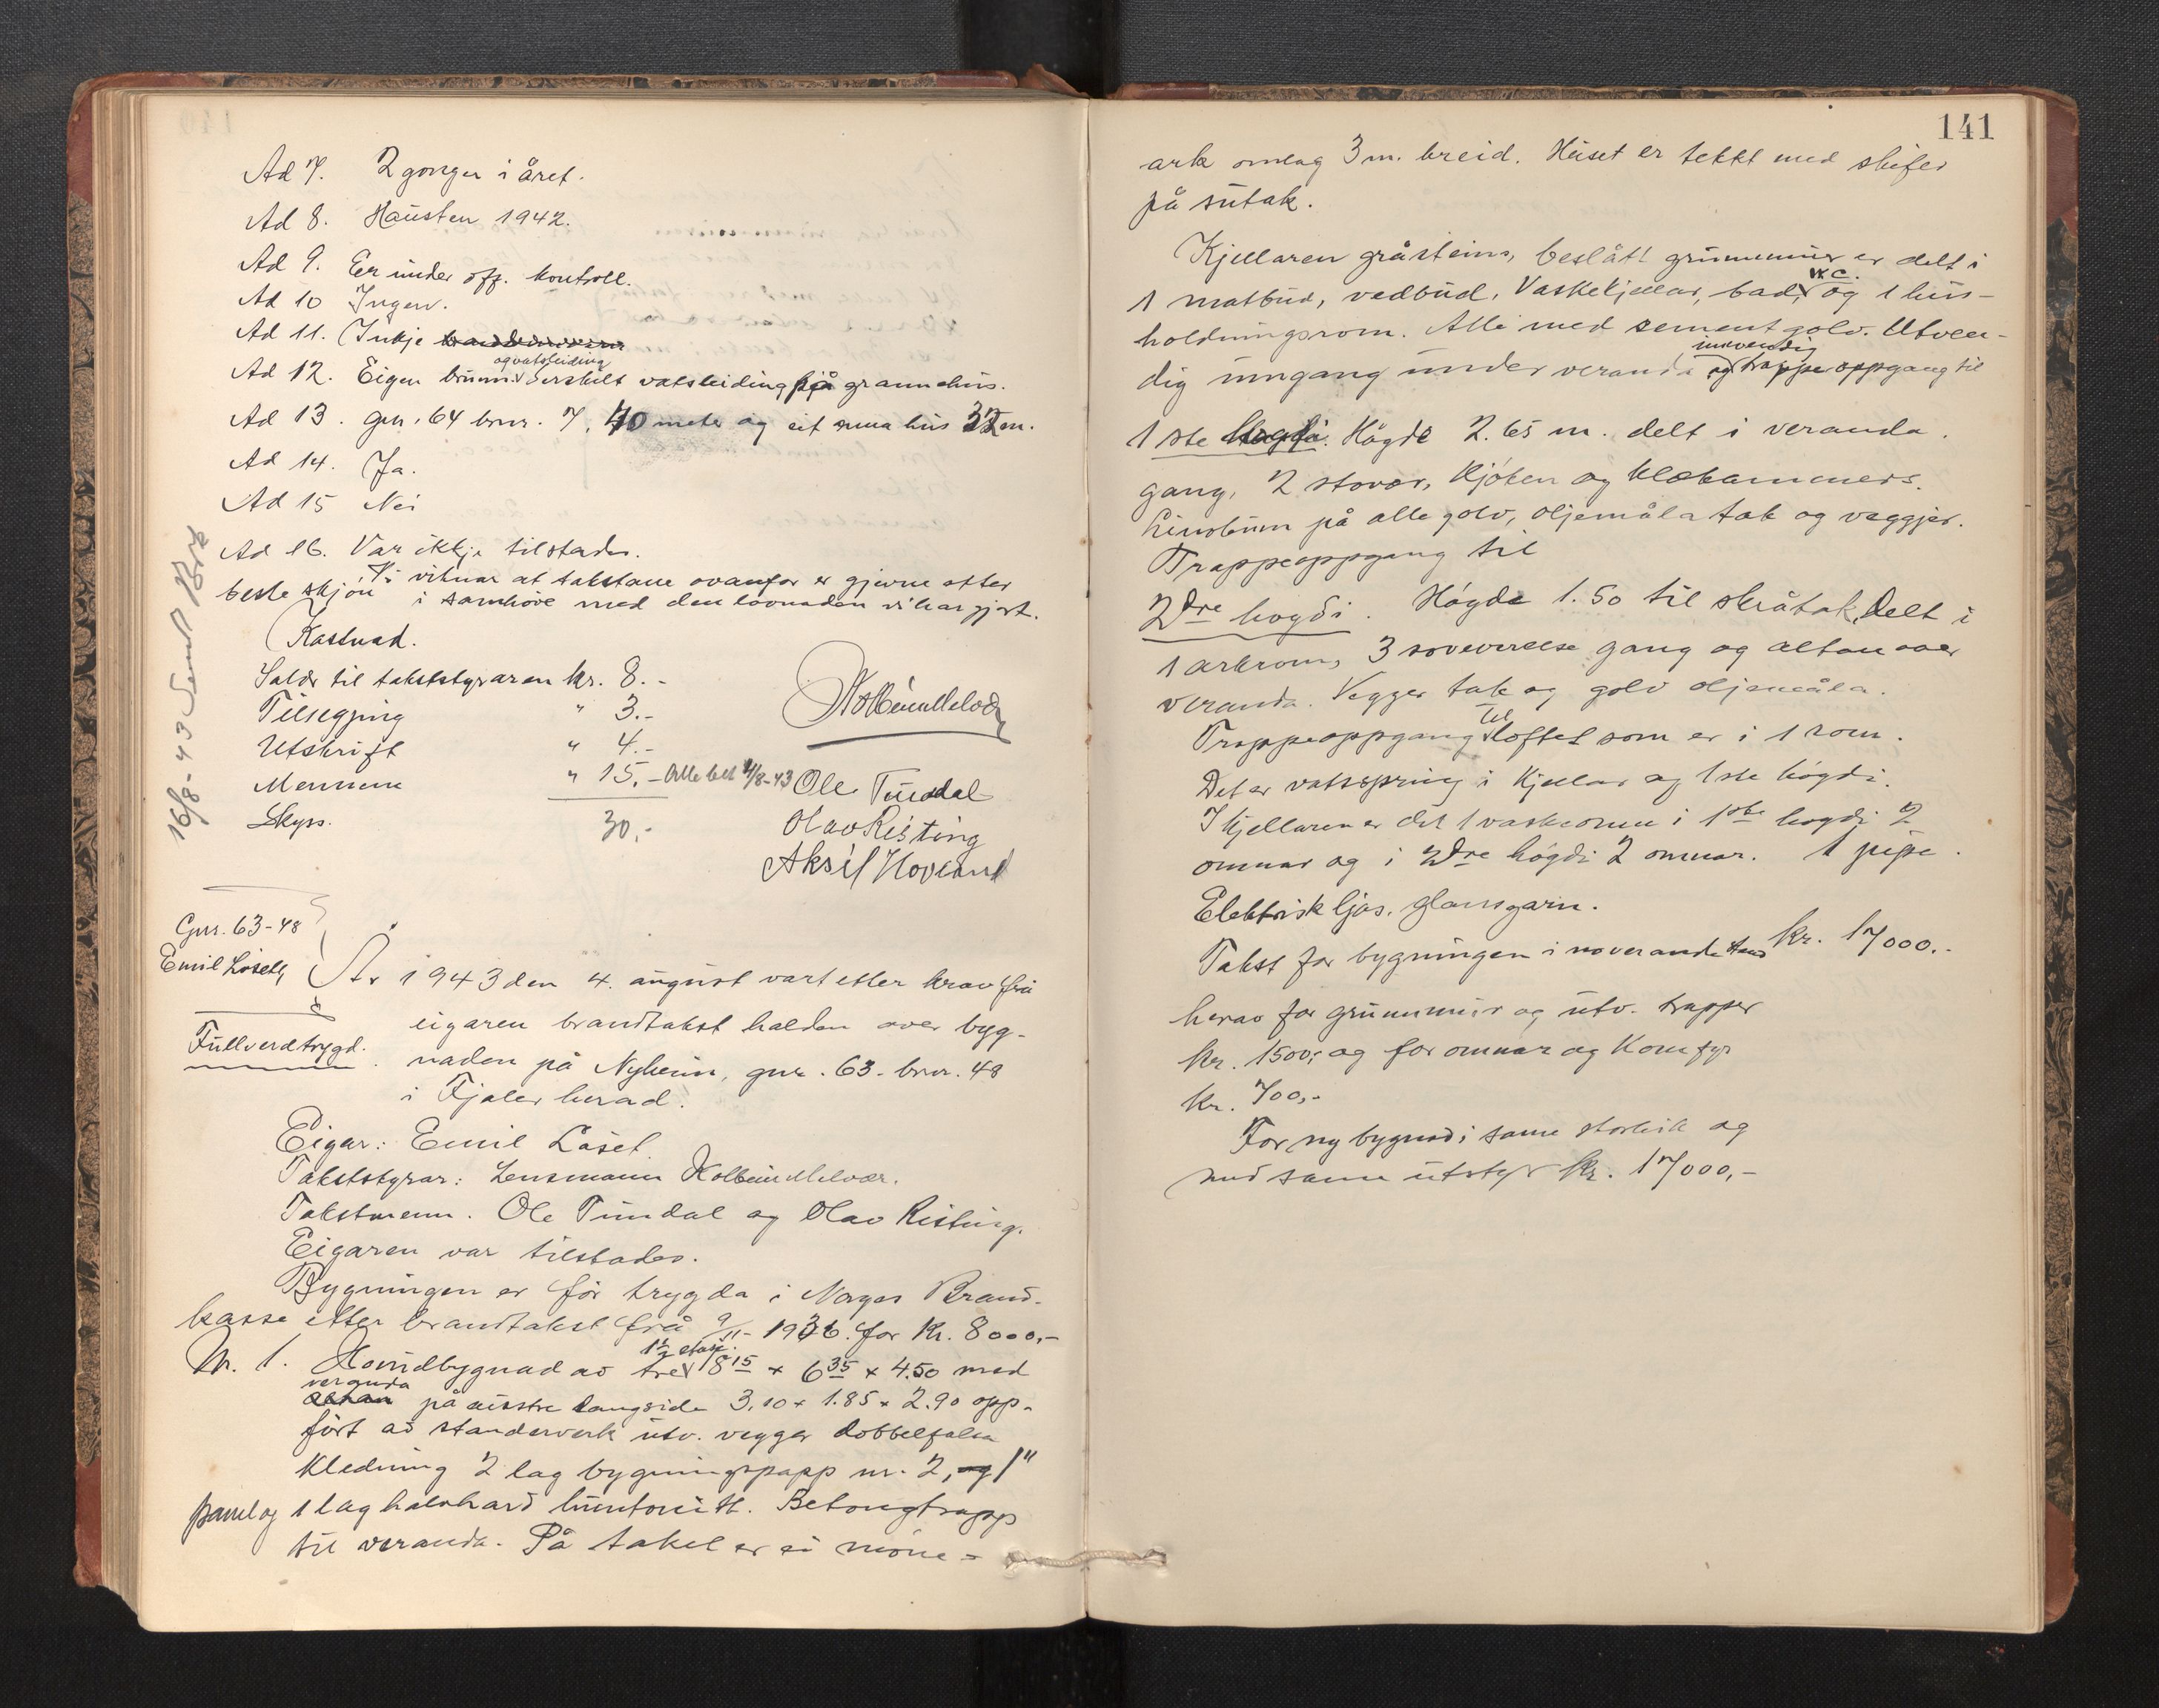 Ad 7. 2 gonger i året.
Ad 8. Hausten 1942.
Ad 9. Er under off. kontroll.
Ad 10 Ingen.
Ad 11. Inkje
og vatsleiding
Ad 12. Eigen brunn. Serskilt vatsleiding hjå grannehus.
Ad 13. gnr. 64 bnr. 7, 40 meter og eit sma hus 32 m.
Ad 14. Ja.
Ad 15 Nei
Ad 16. Var ikkje tilstades.
Vi vitnar at takstane ovanfor er gjevne etter
beste skjön i samhöve med den lovnaden vi har gjort.
Kostnad.
Salær til takststyraren kr. 8.-
Tilsegjing " 3.-
Utskrift " 4.-
Mennene " 15.- Alle bet 4/8-43
Skyss.
30.-
Kolbein Melvær
Ole Tundal
Olav Risting
Aksel Hovland
16/8-43 Sendt
Gnr. 63-48
Emil Låset
Fullverdtrygd.
År 1943 den 4. august vart etter krav frå
eigaren brandtakst halden over byg-
naden på Nyheim, gnr. 63. bnr. 48
i Fjaler herad.
Eigar: Emil Låset.
Takststyrar: Lensmann Kolbein Melvær.
Takstmenn. Ole Tundal og Olav Risting.
Eigaren var tilstades.
Bygningen er för trygda i Norges Brand-
kasse etter brandtakst frå 9/11-1936. for Kr. 8000,-
1½ etasj.
Nr. 1. Hovudbygnad av tre 8 15 x 6 35 x 4.50 med
veranda
altan på austre langside 3.10 x 1.85 x 2.90 opp-
fört av standerverk utv. vegger dobbelfalsa
kledning 2 lag bygningspapp nr. 2, og 1"
panel og 1 lag halvhard huntonitt. Betongtrapp
til veranda. På taket er ei möne-
141
ark omlag 3 m. breid. Huset er tekkt med skifer
på sutak.
Kjellaren gråsteins, beslått grunnmur er delt i
W.C.
1 matbud, vedbud, Vaskekjellar, bad, og 1 hus-
holdningsrom. Alle med sementgolv. Utven-
innvendig
dig inngang under veranda og trappeoppgang til
1ste högdi. Högde 2.65 m. delt i veranda.
gang, 2 stover, Kjöken og klækammers.
Linoleum på alle golv, oljemåla tak og veggjer.
Trappeoppgang til
2dre högdi. Högde 1.50 til skråtak. Delt i
1 arkrom, 3 soveverelse gang og altan over
veranda. Vegger tak og golv oljemåla.
til
Trappeoppgang loftet som er i 1 rom.
Det er vatsspring i Kjellar og 1ste högdi.
I kjellaren er det 1 vaskeomn i 1ste högdi 2
omnar og i 2dre högdi 2 omnar. 1 pipe.
Elektrisk ljos. glansgarn.
Takst for bygningen i noverande stand kr. 17000.-
herav for grunnmur og utv. trapper
kr. 1500,- og for omnar og Komfyr
kr. 700,-
For ny bygnad i same storleik og
med same utstyr kr. 17000,-